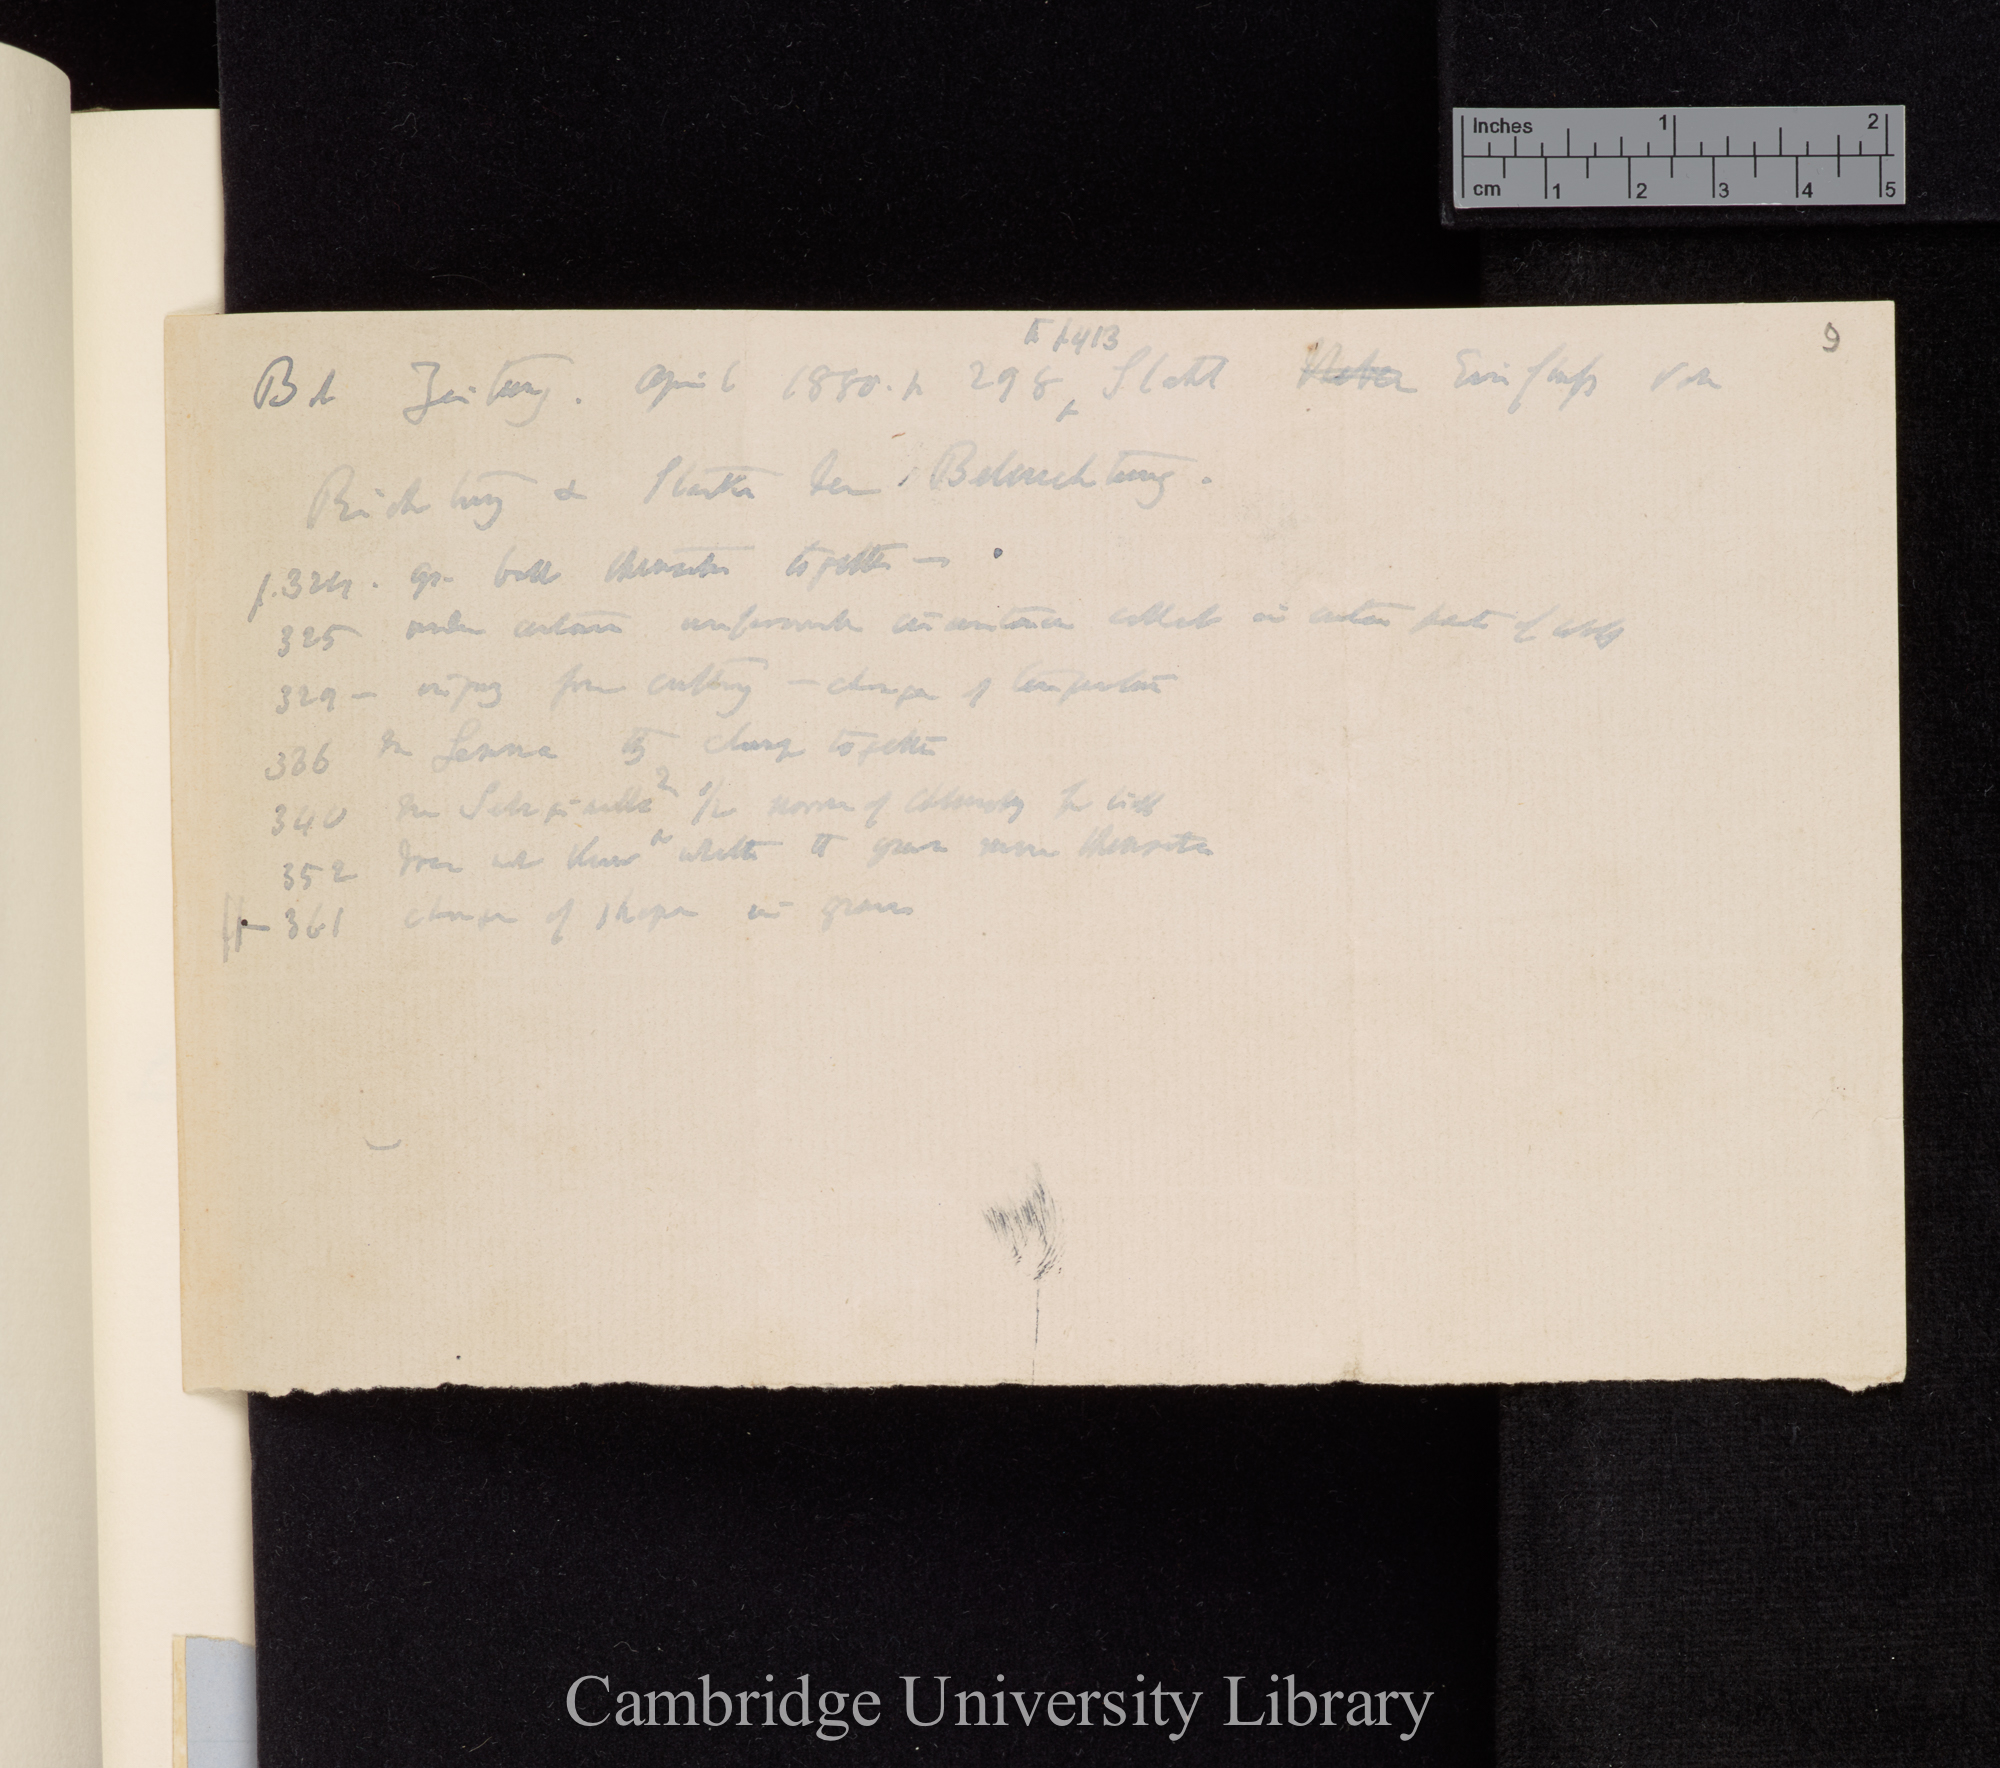 Inches 1 2
cm 1 2 3 4 5
9
to p 413
Bot Zeitung. April 1880. p 298, Stahl Ueber Einfluss von
Richtung & Starke der Beleuchtung.
p. 324. gr themselves together —
325 under certain unfavourable circumstances collect in certain parts of cells
329 — injury from cutting — change of temperature
336 In Lemna they clump together
340 In
352 Does not know whether the grains move themselves
361 change of shape in grains
Cambridge University Library